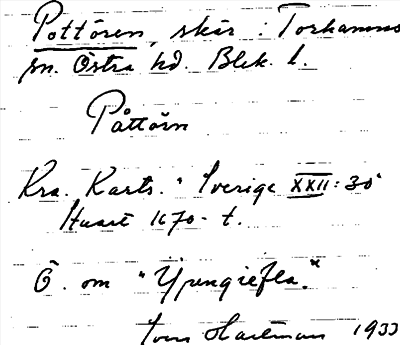 Pottören, skär i Torhamns
sn. Östra hd. Blek. l.
Påttörn
Kra. Kartv. Sverige XXII:30
1670- t.
Ö. om "Ypengiefla."
Hartman 1933